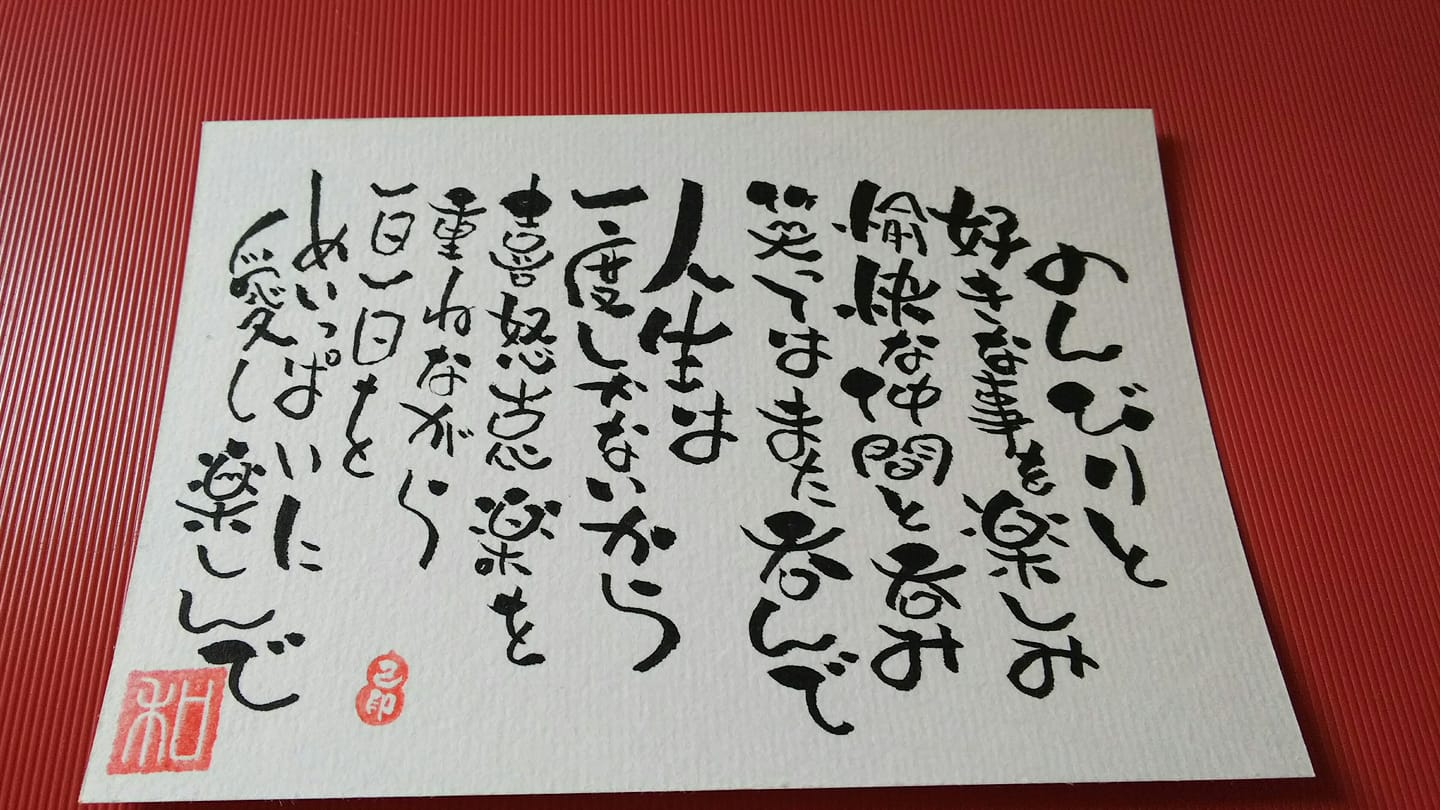 のんびりと
好きな事を楽しみ
愉快な仲間と呑み
笑ってはまた呑んで
人生は
一度しかないから
喜怒哀楽を
重ねながら
一日一日を
めいっぱいに
愛し楽しんで
和